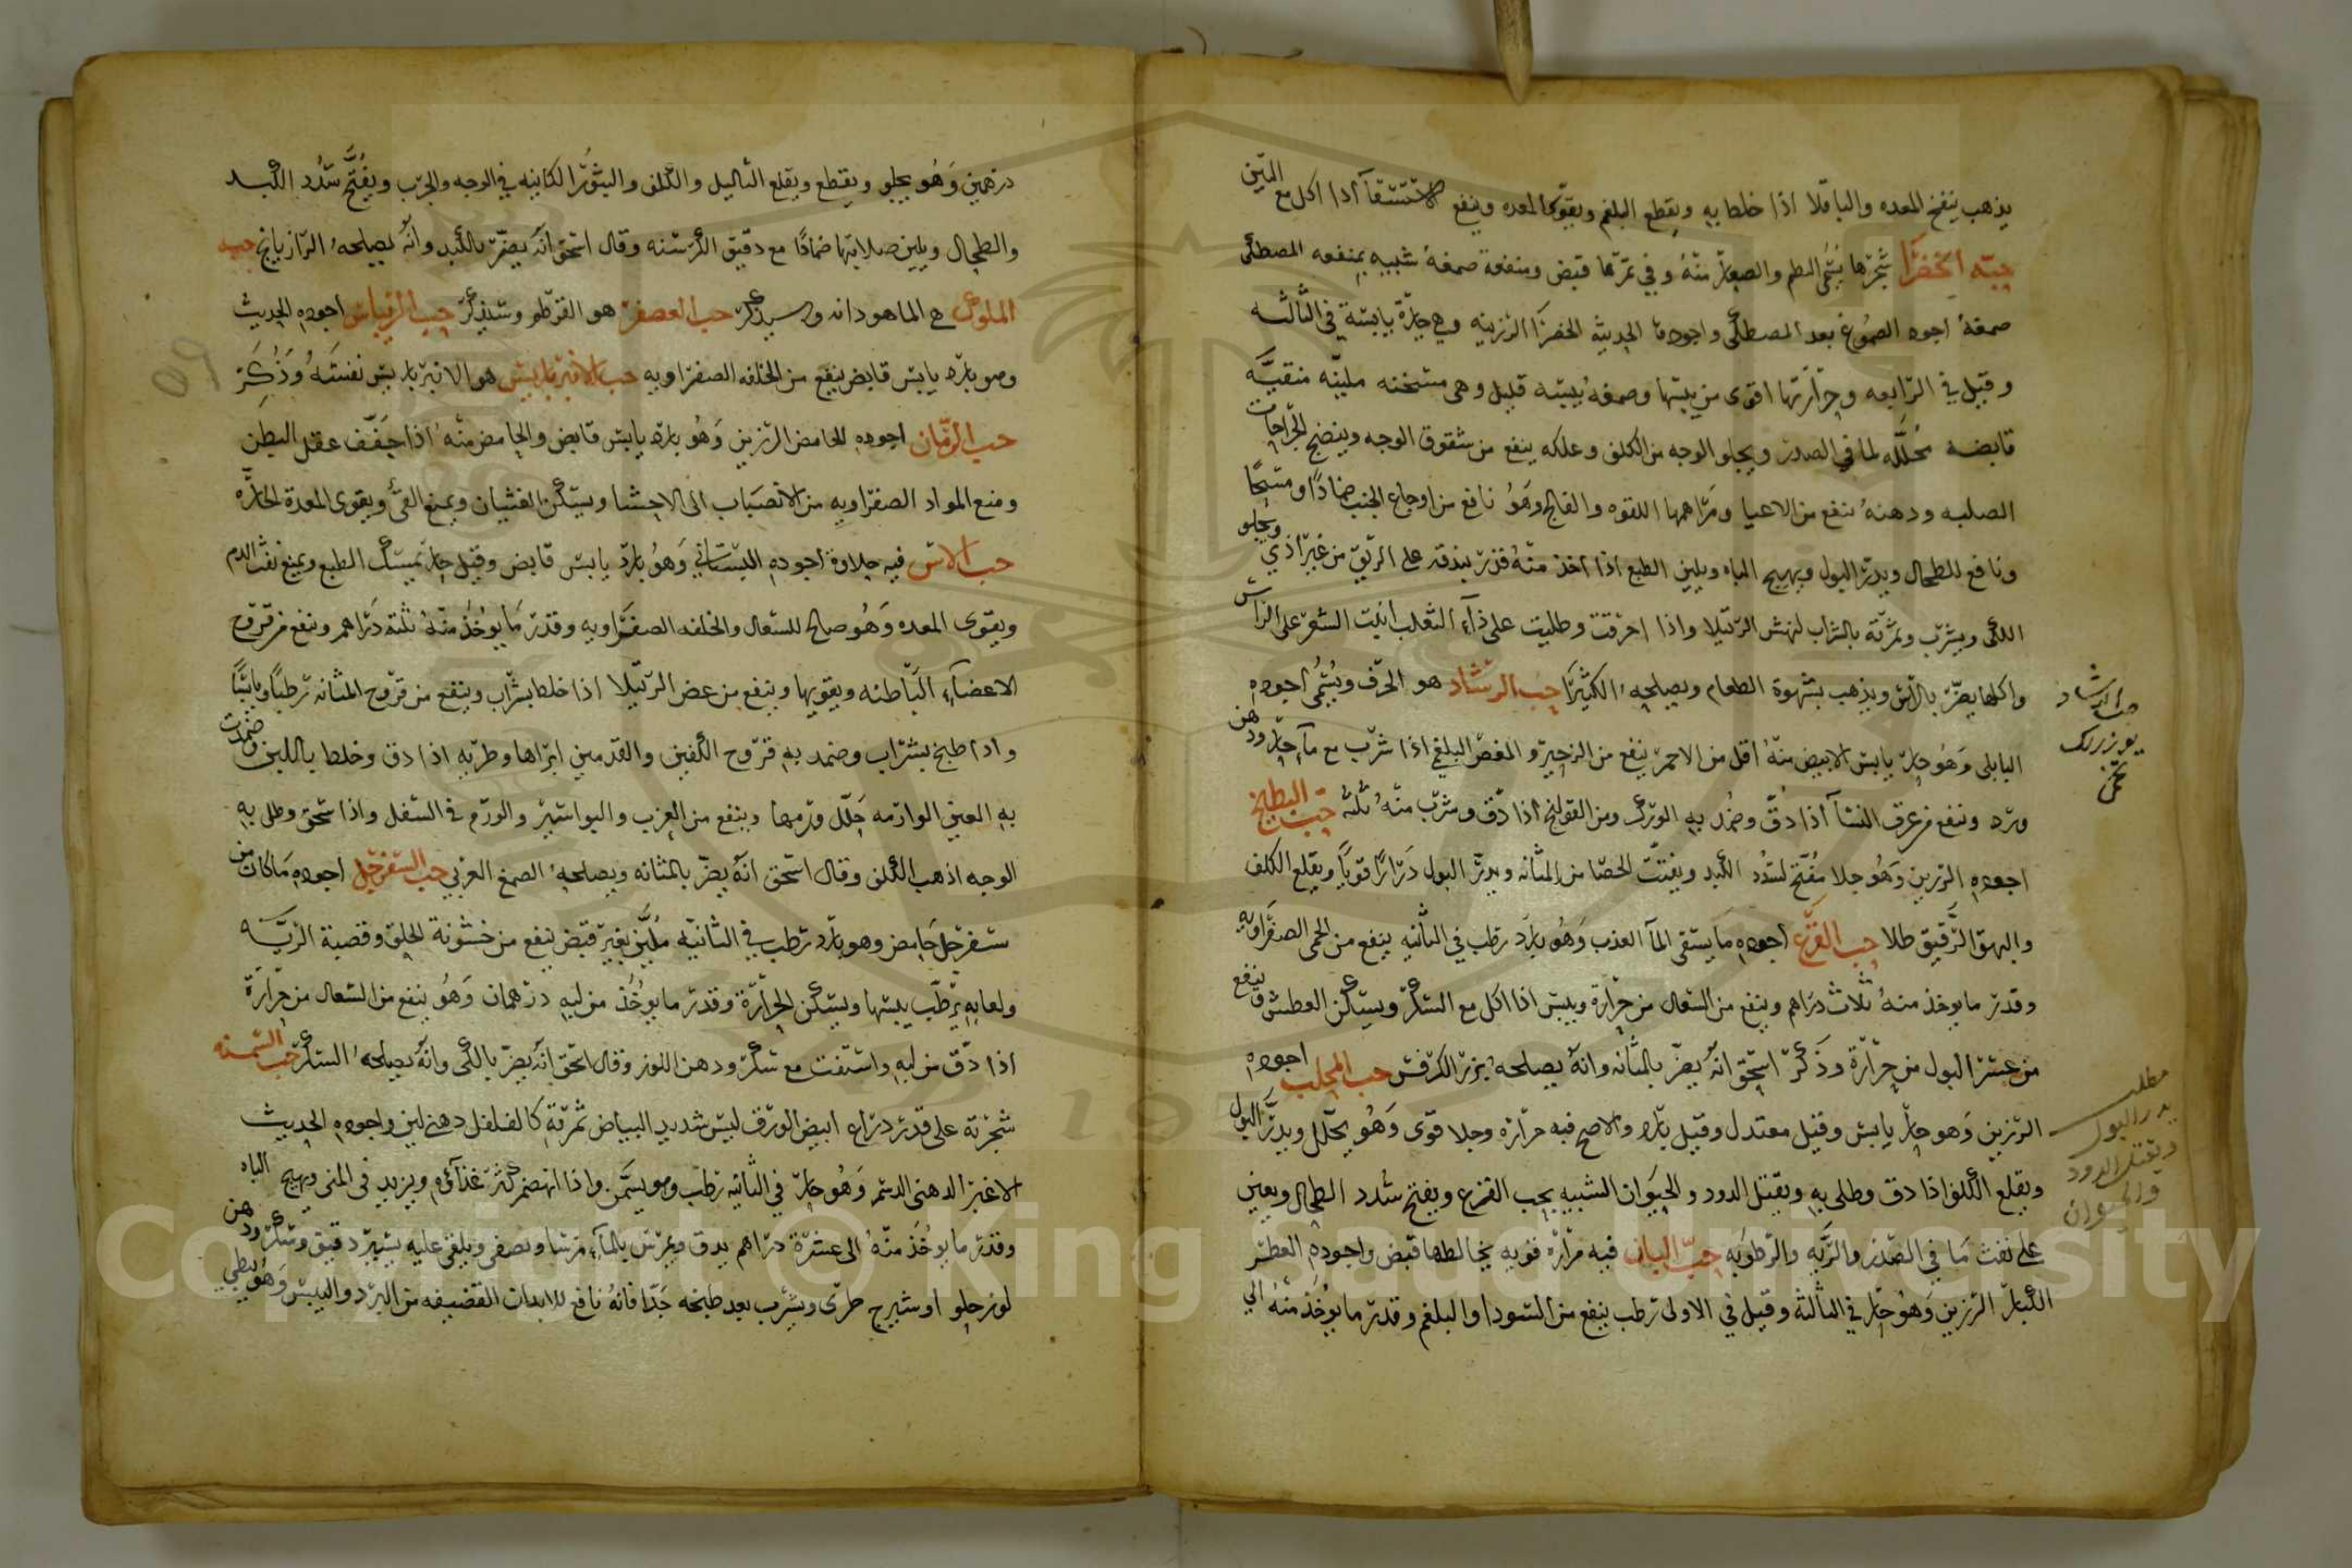 يذهب بنفخ المعده والباقلا اذا خلط به ويقطع البلغم ويقوى المعده وينفع الاستسقآ اذا اكل مع التين
حبّه الخضرا شجرها يسمى البطم والصغار منهُ وفي ثمرتها قبض ومنفعة صمغهُ شبيه بمنفعه المصطكى
صمغهُ اجود الصموغ بعد المصطكى واجودها الحديثه الخضرا الرزينه وهي حارّة يابسة في الثالثه
وقيل في الرابعه وحرارتها اقوى من يبسها وصمغه يبسه قليل وهى مسخنه مليّنه منقيّه
قابضه محلّله لما في الصدر ويجلو الوجه من الكلف وعلكه ينفع من شقوق الوجه وينضج الجراحات
الصلبه ودهنهُ ينفع من الاعيا ومراهمها اللقوه والفالج وهوُ نافع من اوجاع الجنب ضمادًا ومسحًا
ونافع للطحال ويدرّ البول ويهيج الباه ويلين الطبع اذا اخذ منهُ قدر بندقه على الريق من غير اذي ويجلو
الكلى ويشرب وثمرته بالشراب لنهش الرتيلا واذا احرقت وطليت على دآء الثعلب انبت الشعر على الراس
واكلها يضرّ بالراس ويذهب بشهوة الطعام ويصلحه الكثيرا حب الرشاد هو الحرف ويسُمى اجوده
البابلى وهُو حارّ يابس الابيض منهُ اقل من الاحمر ينفع من الزحير والمغص البلغمي اذا شرب مع مآ حارّ ودهن
ورد وينفع من عرق النسآ اذا دُقّ وضمُد به الورك ومن القولنج اذا دق وشرب منهُ ثلثه حبّ البطيخ
اجوده الرزين وهُو جلا مُفتّح لسُدد الكبد ويفتت الحصا من المثانه ويدرّ البول دَرارًا قويًا ويقلع الكلف
والبهق الرّقيق طلا حب القرع اجوده مَا يسقى المآ العذب وهُو بارَد رطب في الثانيه ينفع من الحمى الصفراويه
وقدر ما يوخذ منهُ ثلاث دراهم وينفع من السعال من حرارة ويبس اذا اكل مع السكر ويسكن العطش وينفع
من عسر البول من حرارة وذكر اسحق انهُ يضرّ بالمثانه وانهُ يصلحه بزر الكرفس حب المحلب اجوده
الرزين وَهو حارّ يابس وقيل معتدل وقيل بارد والاصح فيه حرارة وجلا قوى وهُو يحلّل ويدرّ البول
ويقلع الكلف اذا دق وطلى به ويقتل الدود والحيَوان الشبيه بحب القرع ويفتح سُدد الطحال ويعين
على نفث مَا في الصدر والريه والرطوبَه حبّ البان فيه مرارة قويه يخالطها قبض واجوده العطر
الكبار الرزين وهُو حارّ في الثالثه وقيل في الاولى رطب ينفع من السودا والبلغم وقدر ما يوُخذ منهُ الي
حب الرشاد
مطلب
يدر البول
ويقتل الدود
والحيوان
درهمين وَهُو يجلو ويقطع ويقلع الثاليل والكلف والبثورُ الكاينه في الوجه والجرب ويُفتّح سُدد الكبد
والطحال ويلين صلابتها ضمادًا مع دقيق الكرسنه وقال اسحق انهُ يضرّ بالكبد وانهُ يصلحهُ الرازيانج حب
الملوك هي الماهودانه وسيذكر حب العصفر هو القرطم وسيذكر حب الريباس اجوده الحديث
وهو بارد يابس قابض ينفع من الخلفه الصفراويه حب الانبرباريس هو الانبرباريس نفسَهُ وَذُكِرَ
حب الرمّان اجوده الحامض الرزين وَهُو بارد يابس قابض والحامض منهُ اذا جَفّف عقل البطن
ومنع المواد الصفراويه من الانصبَاب الى الاحشا ويسكن الغثيان ويمنع القئ ويقوى المعدة الحارّه
حب الاس فيه حلاوة اجوده البستاني وَهُو بارد يابس قابض وقيل حارّ يمسك الطبع ويمنع نفث الدم
ويقوى المعده وَهُو صالح للسعال والخلفه الصفراويه وقدر مَا يوُخذ منهُ ثلثه دَراهم وينفع من قروح
الاعضآء البَاطنه ويقويها وينفع من عض الرتيلا اذا خلط بشراب وينفع من قروح المثانه رطبًا ويابسًا
واذا طبخ بشراب وضمد به قروح الكفين والقدمين ابراها وطريه اذا دق وخلط باللبن وضمّدت
به العين الوارمه حَلّل ورمها وينفع من الغرب والبواسير والورم في السفل واذا سحق وطلى به
الوجه اذهب الكلف وقال اسحق انهُ يضرّ بالمثانه ويصلحهُ الصمغ العربي حب السفرجل اجوده مَا كان من
سفرجل حَامض وهو بارد رطب في الثانيه مُليّن بغير قبض ينفع من خشونة الحلق وقصبة الريّه
ولعابه يرطّب يبسها ويسكن الحرارَة وقدر ما يوُخُذ من لبه درهمان وَهُو ينفع من السعال من حرارَة
اذا دّق من لبه واستفت مع سكر ودهن اللوز وقال اسحق انهُ يضرّ بالكلى وانهُ يصلحهُ السكر حب السمنه
شجرته على قدر دراع ابيض الورق ليس شديد البياض ثمرته كالفلفل دهنه لين واجوده الحديث
الاغبر الدهنى الدسم وَهُو حارّ في الثانيه رطب وهو يسَمّن واذا انهضم كثر غذآئه ويزيد في المنى ويهيج الباه
وقدر ما يوخُذ منهُ الى عشرة دراهم يدق ويمرس بالمآء مرسا ويصفى ويلقى عليه يسير دقيق وسكر ودهن
لوز حلو او شيرج طرى ويشرب بعد طبخه جَدّا فانهُ نافع للابدان القضيفه من البرد واليبس وَهُو بطي
Copyright © King Saud University